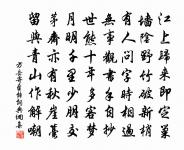 江上歸來即定巢
墻陰野竹破新梢
有人問字時相過
無事觀書手自抄
世態十年多客夢
月明千里少朋交
茅齋亦有秋崖意
留與青山作解嘲